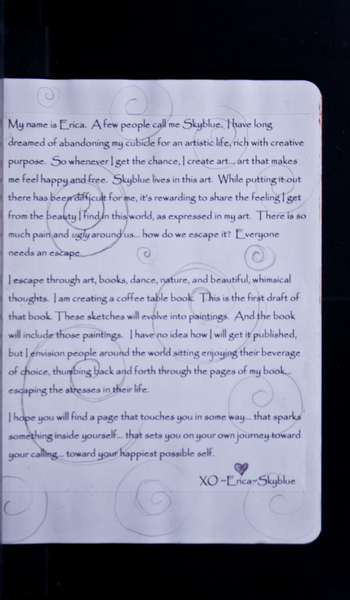 My name is Erica. A few people call me Skyblue. I have long
dreamed of abandoning my cubicle for an artistic life, rich with creative
purpose. So whenever I get the chance, I create art... art that makes
me feel happy and free. Skyblue lives in this art. While putting it out
there has been difficult for me, it's rewarding to share the feeling I get
from the beauty I find in this world, as expressed in my art. There is so
much pain and ugly around us... how do we escape it? Everyone
needs an escape...
I escape through art, books, dance, nature, and beautiful, whimsical
thoughts. I am creating a coffee table book. This is the first draft of
that book. These sketches will evolve into paintings. And the book
will include those paintings. I have no idea how I will get it published,
but I envision people around the world sitting enjoying their beverage
of choice, thumbing back and forth through the pages of my book...
escaping the stresses in their life.
I hope you will find a page that touches you in some way... that sparks
something inside yourself... that sets you on your own journey toward
your calling... toward your happiest possible self.
XO ~Erica~Skyblue